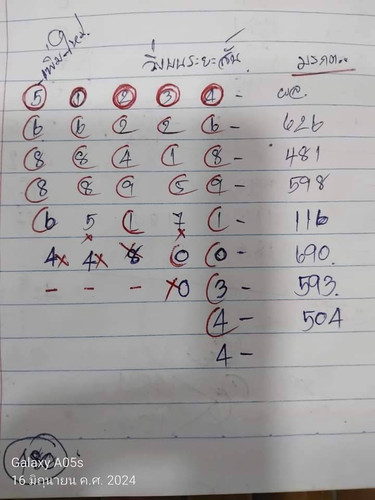 วิ่งบนระยะสั้น
5 1 2 3 4 - ผล.
6 6 2 2 6 - 626
8 8 4 1 8 - 481
8 8 9 5 9 - 598
6 5 1 7 1 - 116
4x 4x 8 0 0 - 690.
- - - x0 3 - 593.
4 - 504
4 -
Galaxy A05s
16 มิถุนายน ค.ศ. 2024